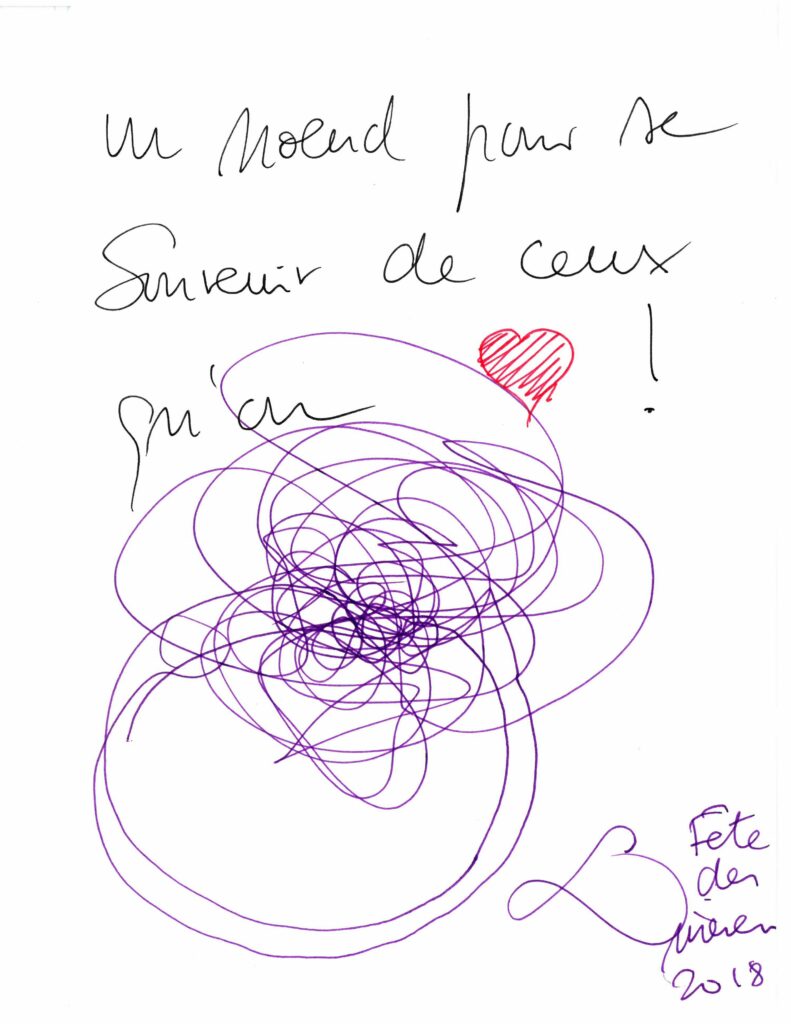 un Noeud pour se
Souvenir de ceux
qu'on ❤ !
Fête
des
mères
2018